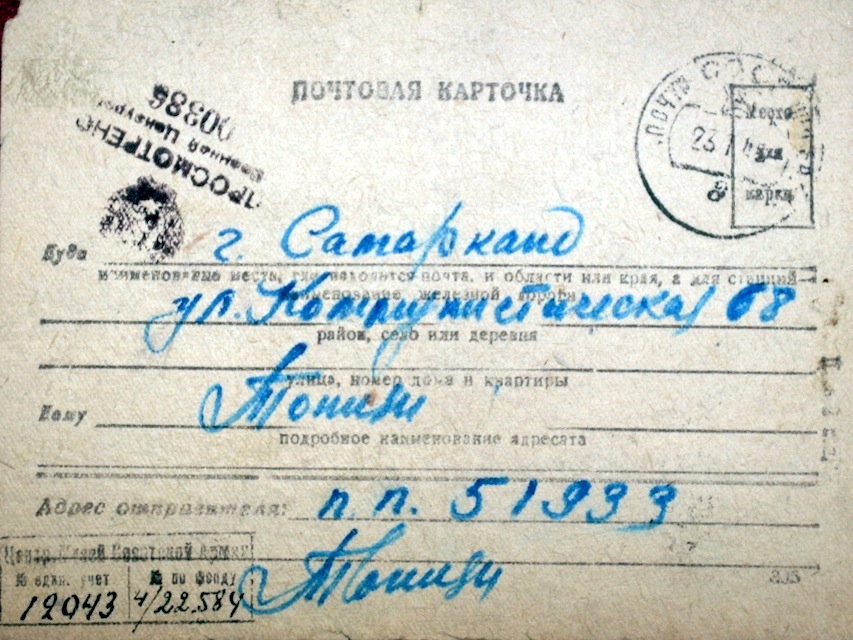 ПОЧТОВАЯ КАРТОЧКА
ПРОСМОТРЕНО
Военной Цензурой
00386
ПОЧТА СССР
23
Место
для
марки
Куда г. Самарканд
наименование места, где находится почта, и области или края, а для станций
наименование железной дороги
ул. Коммунистическая 68
район, село или деревня
улица, номер дома и квартиры
Кому
подробное наименование адресата
Адрес отправителя: п. п. 51933
Центр. Музей Советской Армии
№ един. учет № по фонду
12043 4/22584